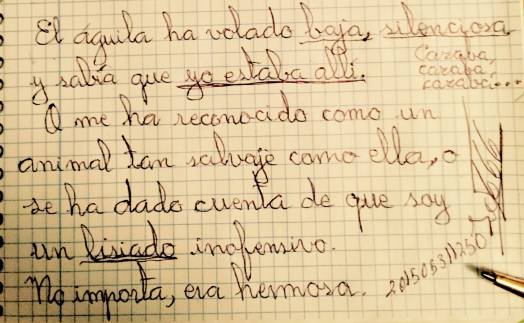 El águila ha volado baja, silenciosa
y sabía que yo estaba allí.
Caraba,
caraba,
caraba...
O me ha reconocido como un
animal tan salvaje como ella, o
se ha dado cuenta de que soy
un lisiado inofensivo.
No importa, era hermosa.
201505311250